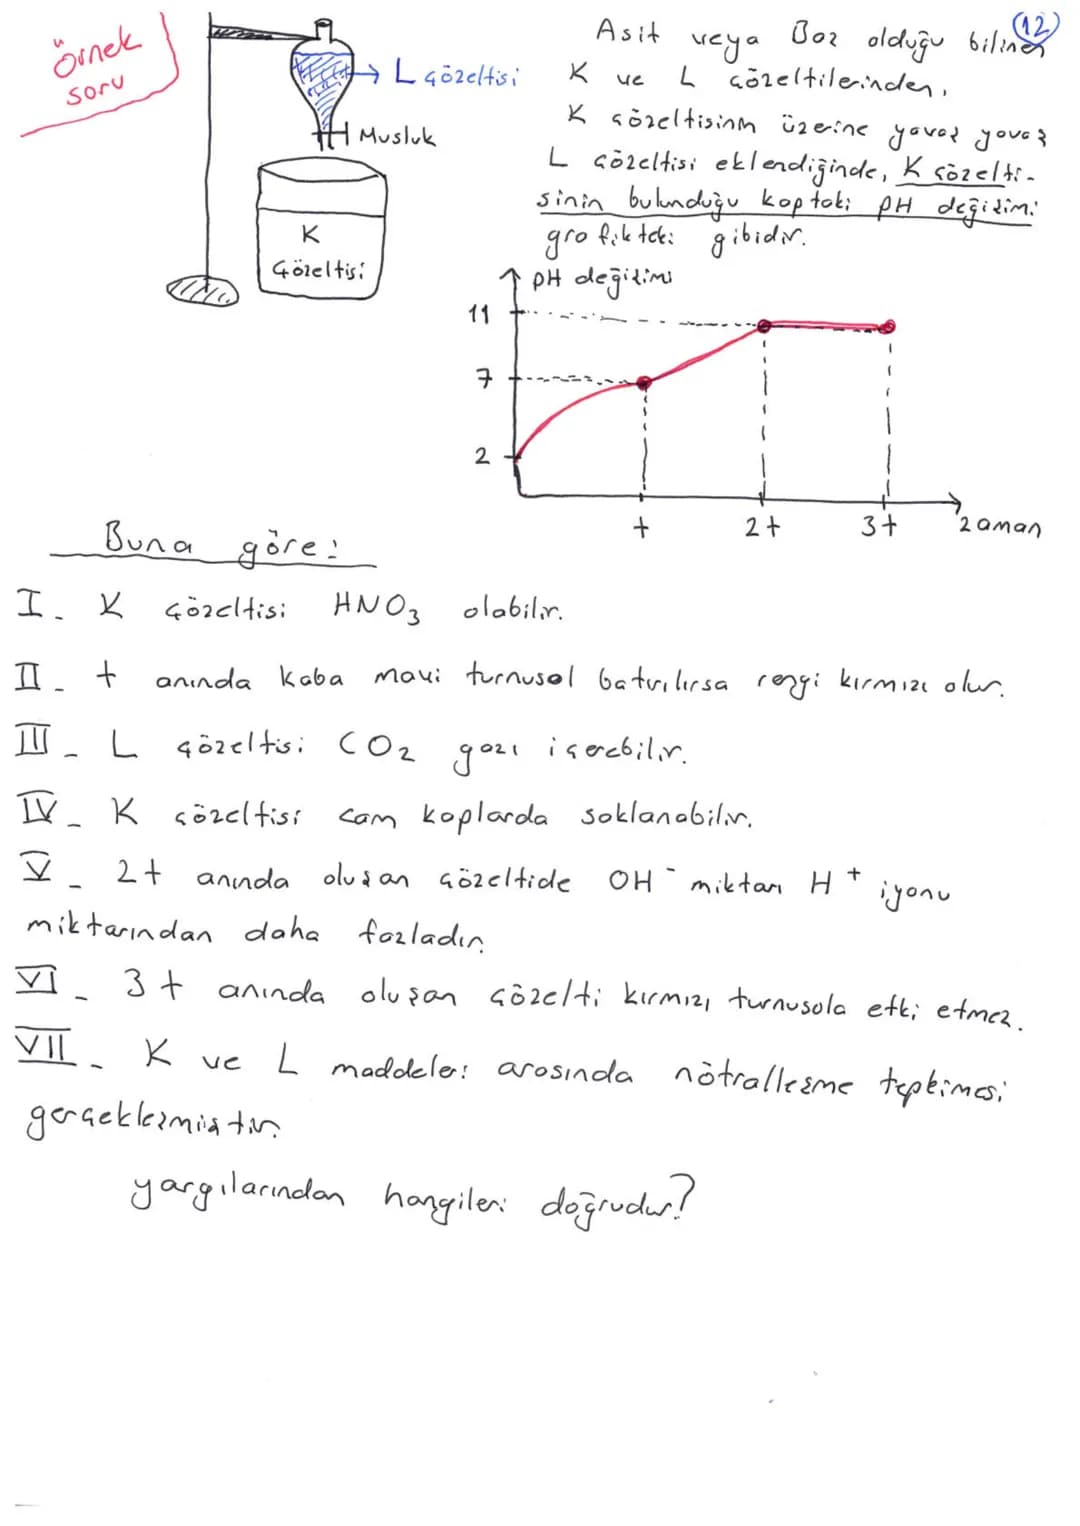 örnek
soru
12
L çözeltisi
Musluk
K
Çözeltisi
Asit veya Baz olduğu bilinen
K ve L çözeltilerinden,
K çözeltisinin üzerine yavaş yavaş
L çözeltisi eklendiğinde, K çözelti-
sinin bulunduğu kaptaki pH değişimi
grafikteki gibidir.
pH değişimi
11
7
2
t 2t 3t zaman
Buna göre:
I. K çözeltisi HNO3 olabilir.
II. t anında kaba mavi turnusol batırılırsa rengi kırmızı olur.
III. L çözeltisi CO2 gazı içerebilir.
IV. K çözeltisi cam kaplarda saklanabilir.
V. 2t anında oluşan çözeltide OH⁻ miktarı H⁺ iyonu
miktarından daha fazladır.
VI. 3t anında oluşan çözelti kırmızı turnusola etki etmez.
VII. K ve L maddeleri arasında nötralleşme tepkimesi
gerçekleşmiştir.
yargılarından hangileri doğrudur?